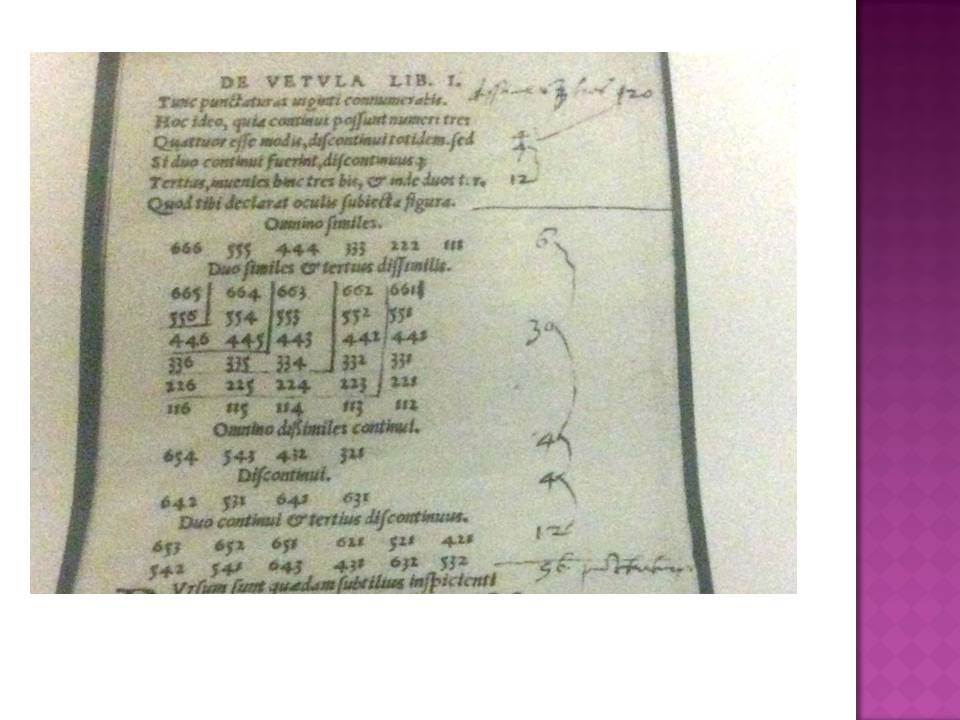 DE VETVLA LIB. I.
Tunc punctaturas uiginti connumerabis.
Hoc ideo, quia continui poſſunt numeri tres
Quattuor eſſe modis, diſcontinui totidem. ſed
Si duo continui fuerint, diſcontinuus
Tertius, inuenies hinc tres bis, & inde duos
Quod tibi declarat oculis ſubiecta figura.
Omnino ſimiles.
666 555 444 333 222 111
Duo ſimiles & tertius diſſimilis.
665 664 663 662 661
556 554 553 552 551
446 445 443 442 441
336 335 334 332 331
226 225 224 223 221
116 115 114 113 112
Omnino diſſimiles continui.
654 543 432 321
Diſcontinui.
642 531 641 631
Duo continui & tertius diſcontinuus.
653 652 651 621 521 421
542 541 643 431 632 532
Vrſum ſunt quædam ſubtilius inſpicienti
120
4
4
12
6
30
4
4
12
56